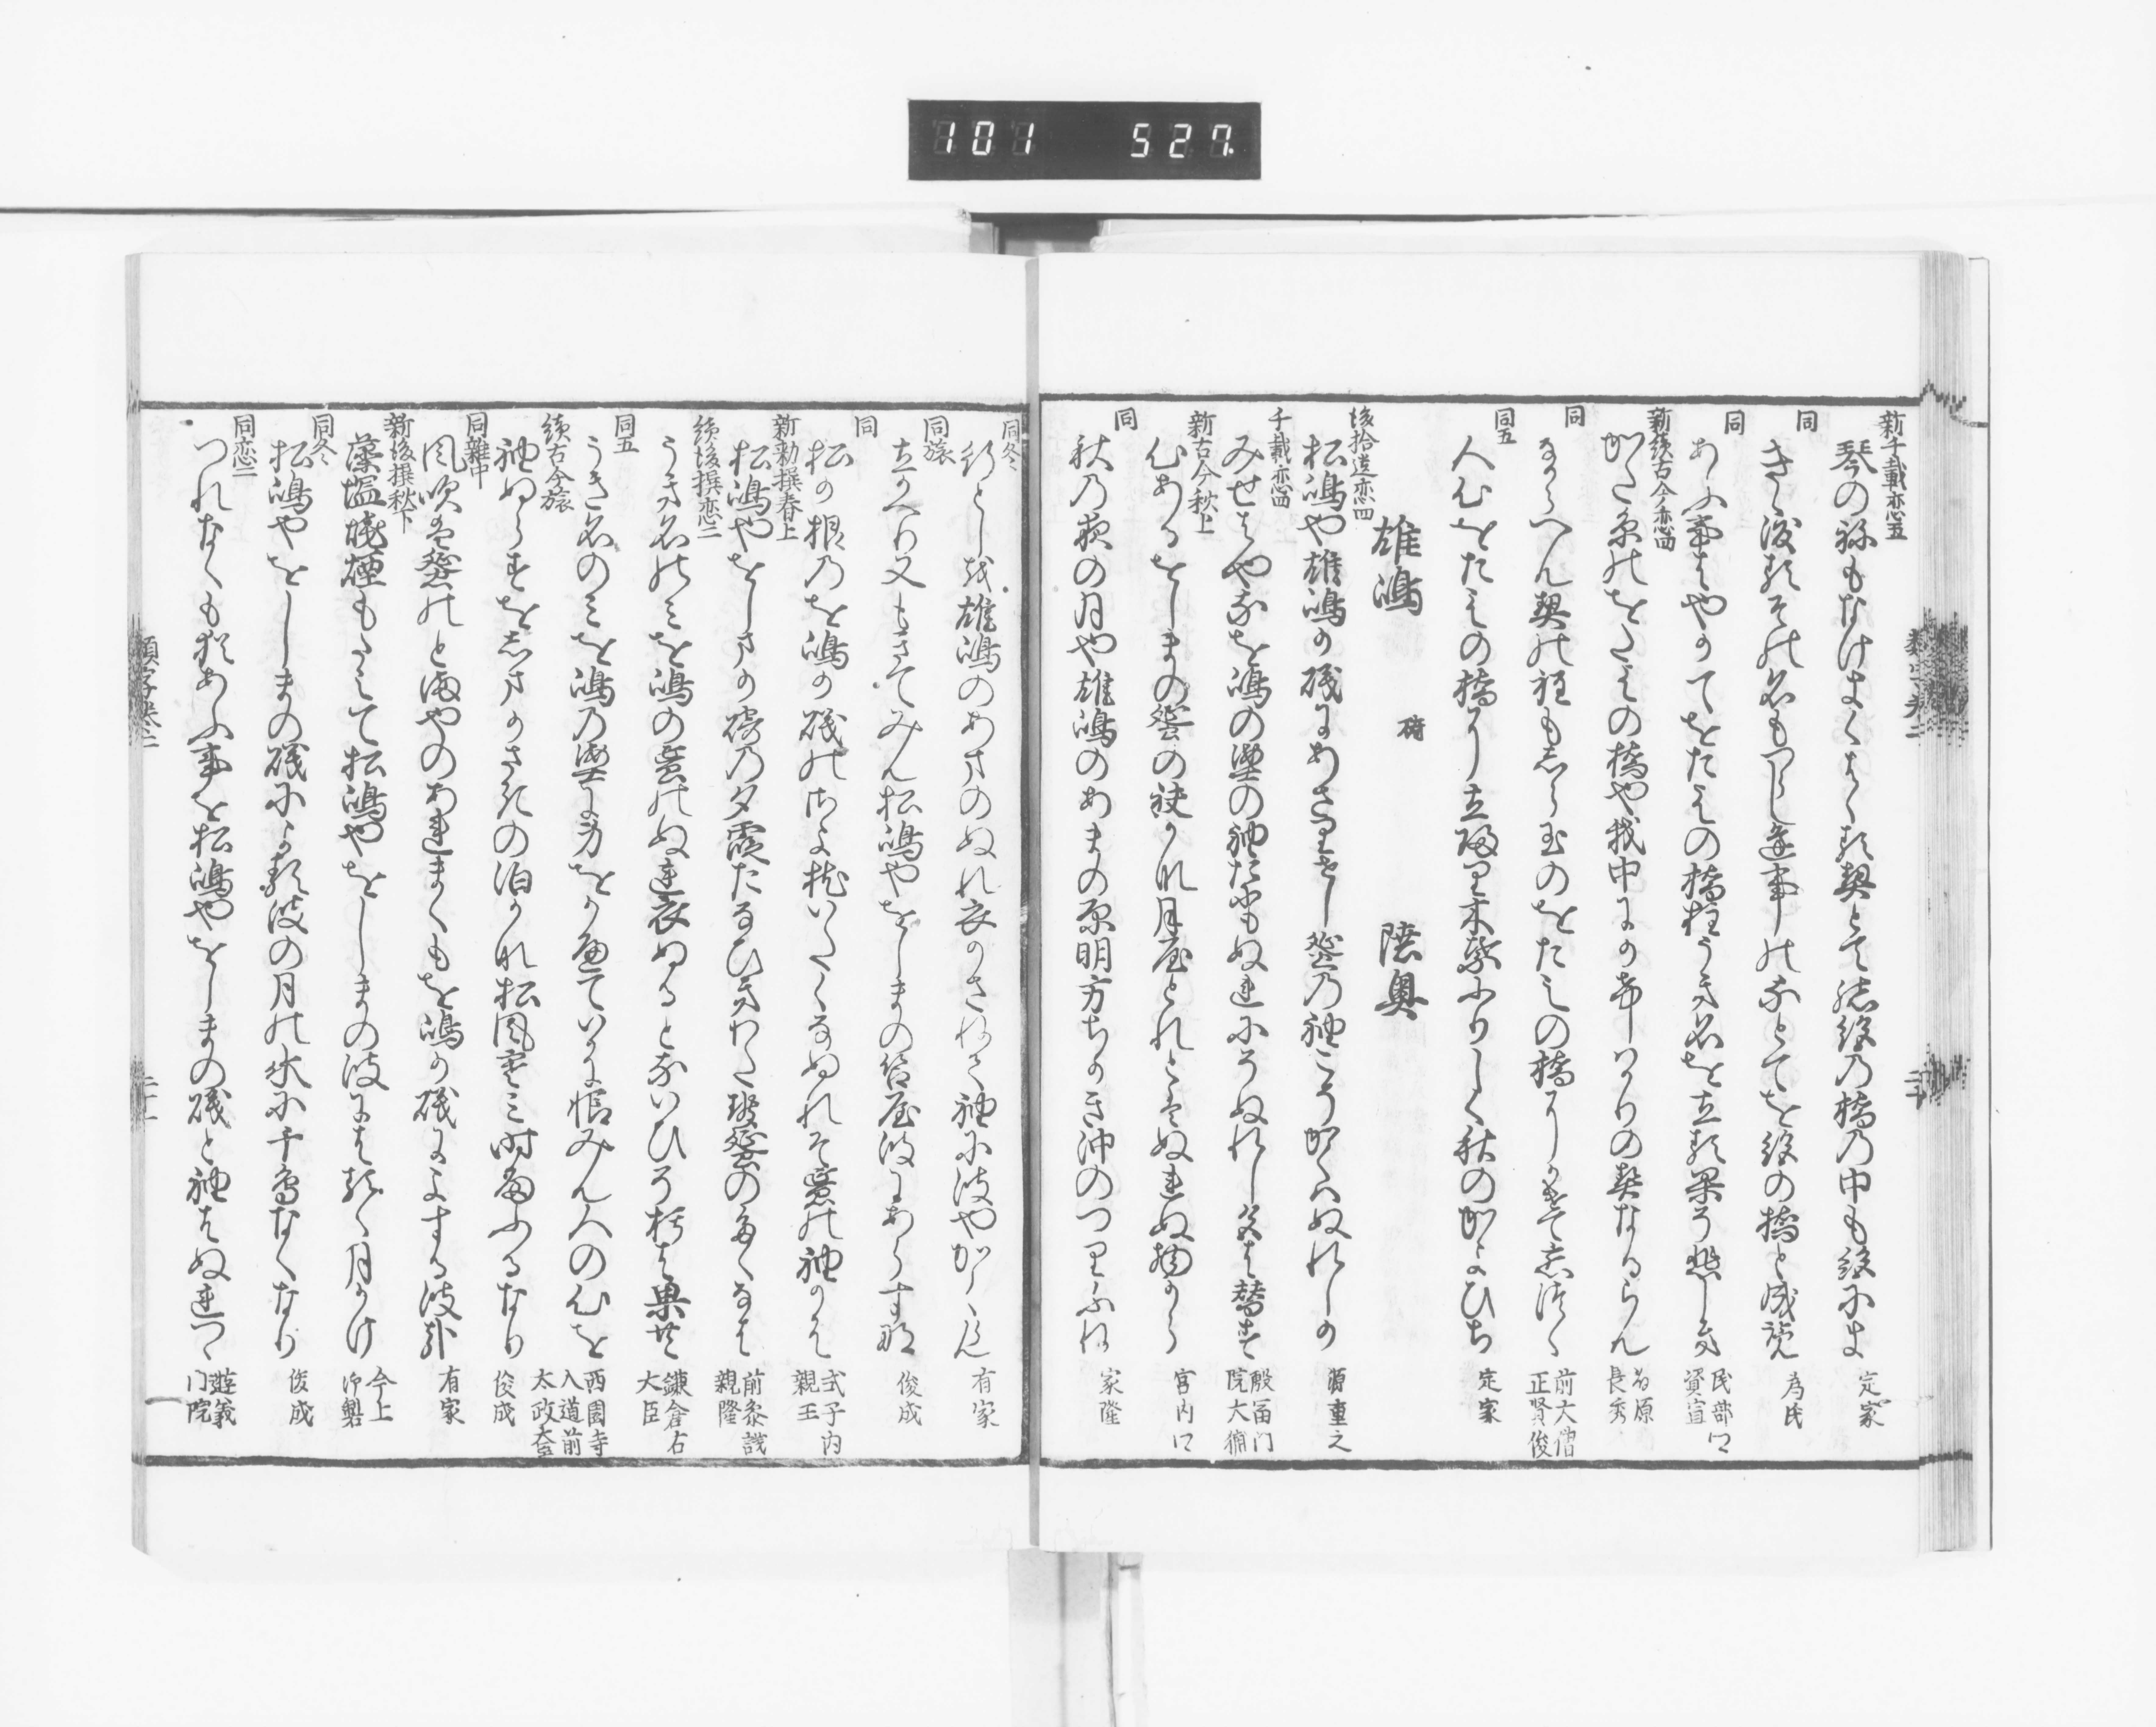 101 527
新千載恋五
琴の祢もなけまくをく類契とて緒絶の橋の中も絶にき 定家
同
きゝ渡類その名もつらし逢事のなとてを絶の橋と成けん 為氏
同
あふ事はやかてをたえの橋柱うき名を立る果そ悲しき 民部卿資宣
新続古今恋四
かた糸のをたえの橋や我中にかけしはかりの契なるらん 為原長秀
同
なからへん契の程もしら玉のをたえの橋にかけて恋つゝ 前大僧正賢俊
同五
人心をたえの橋に立帰り木葉ふりしく秋のかよひち 定家
雄嶋 磯 陸奥
後拾遺恋四
松嶋や雄嶋の磯にあさりせし蜑の袖こそかくはぬれしか 源重之
千載恋四
みせはやな雄嶋の蜑の袖たにもぬれにそぬれし色は替らす 殷冨门院大輔
新古今秋上
心あるをしまの蜑の袂かな月屋とれとはぬれぬ物から 宮内卿
同
秋乃夜の月や雄嶋のあまの原明方ちかき沖のつりふね 家隆
類字巻二 二十
同冬
行とし越雄嶋のあまのぬれ衣かさねて袖に波やかくらん 有家
同旅
立かへり又もきてみん松嶋やをしまの笘屋波にあらすな 俊成
同
松か根のを嶋か磯のさよ枕いたくなぬれそ蜑の袖かは 式子内親王
新勅撰春上
松嶋やをしまか磯の夕霞たなひきわたせ蜑のたくなは 前参議親隆
続後撰恋二
うき名のみを嶋の蜑のぬれ衣ぬるとないひそ朽は果共 鎌倉右大臣
同五
うき名のみを嶋乃蜑 西園寺入道前太政大臣
続古今旅
袖ぬらすをしまかさきの泊かな松風寒み時雨ふるなり 俊成
同雑中
風吹は蜑のとまやのあれまくもを嶋か磯によする波哉 有家
新後撰秋下
藻塩焼煙もたえて松嶋やをしまの波にはるゝ月かけ 今上御製
同冬
松嶋やをしまの磯による波の月の氷に千鳥なくなり 俊成
同恋二
つれなくも猶あふ事を松嶋やをしまの磯と袖はぬれつゝ 遊義门院
類字巻二 二十一